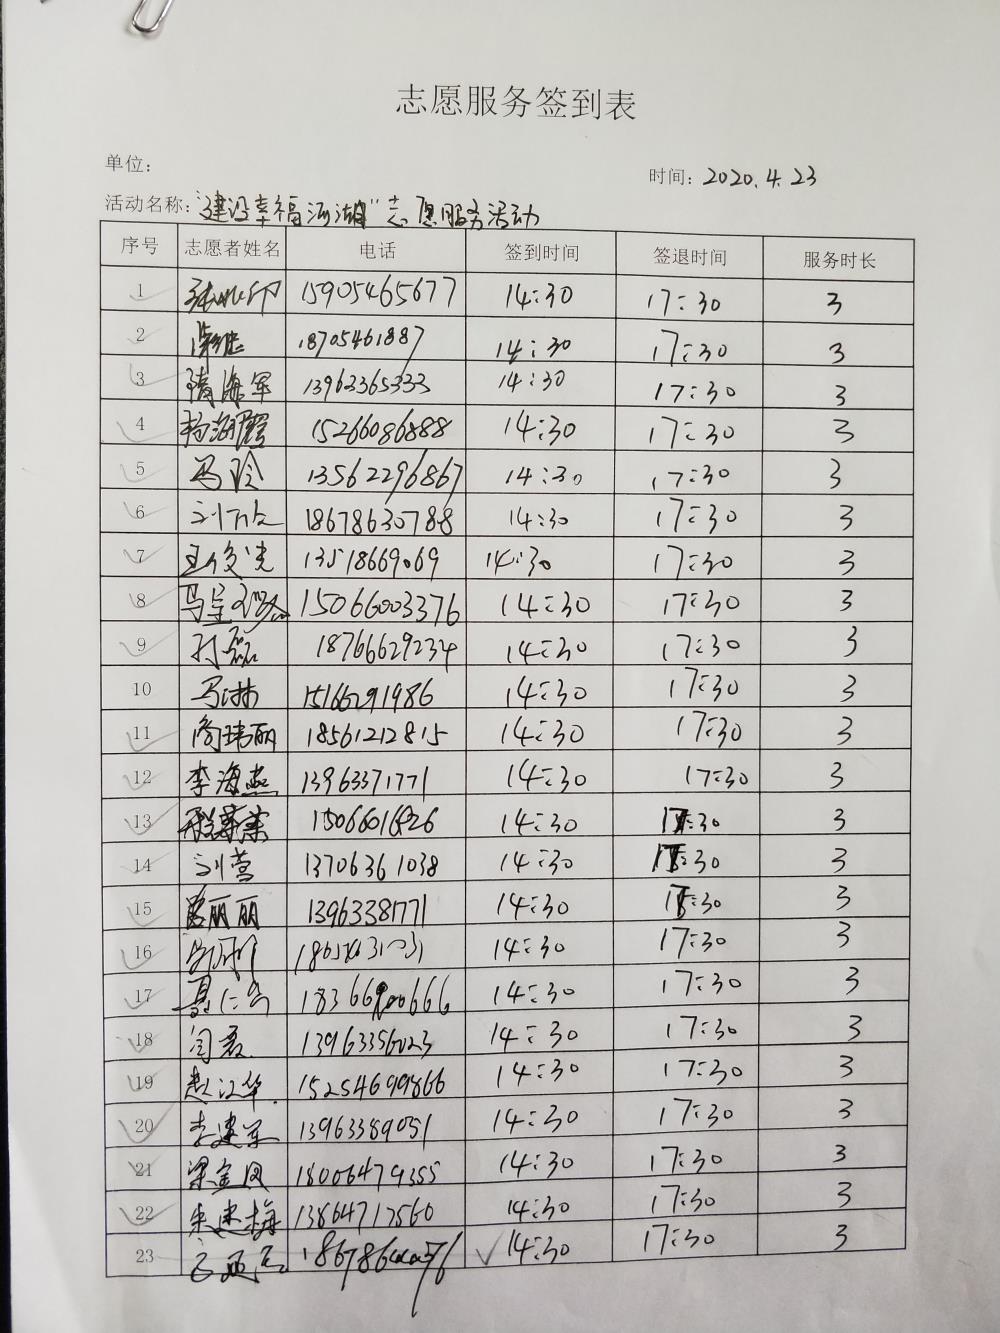 志愿服务签到表
单位：
时间：2020.4.23
活动名称："建设幸福河湖"志愿服务活动
序号 志愿者姓名 电话 签到时间 签退时间 服务时长
1 15905465677 14:30 17:30 3
2 18705461887 14:30 17:30 3
3 隋海军 13963365333 14:30 17:30 3
4 杨海霞 15266086888 14:30 17:30 3
5 马玲 13562296867 14:30 17:30 3
6 18678630788 14:30 17:30 3
7 王俊光 13518669069 14:30 17:30 3
8 15066003376 14:30 17:30 3
9 孙磊 18766629234 14:30 17:30 3
10 马琳 15166291986 14:30 17:30 3
11 商玮丽 18561212815 14:30 17:30 3
12 李海燕 13963371771 14:30 17:30 3
13 14:30 17:30 3
14 刘营 13706361038 14:30 17:30 3
15 丽丽 13963381771 14:30 17:30 3
16 14:30 17:30 3
17 14:30 17:30 3
18 闫磊 13963356023 14:30 17:30 3
19 赵江华 15254699866 14:30 17:30 3
20 李建军 13963389051 14:30 17:30 3
21 梁金凤 18006479355 14:30 17:30 3
22 朱建梅 13864717560 14:30 17:30 3
23 14:30 17:30 3